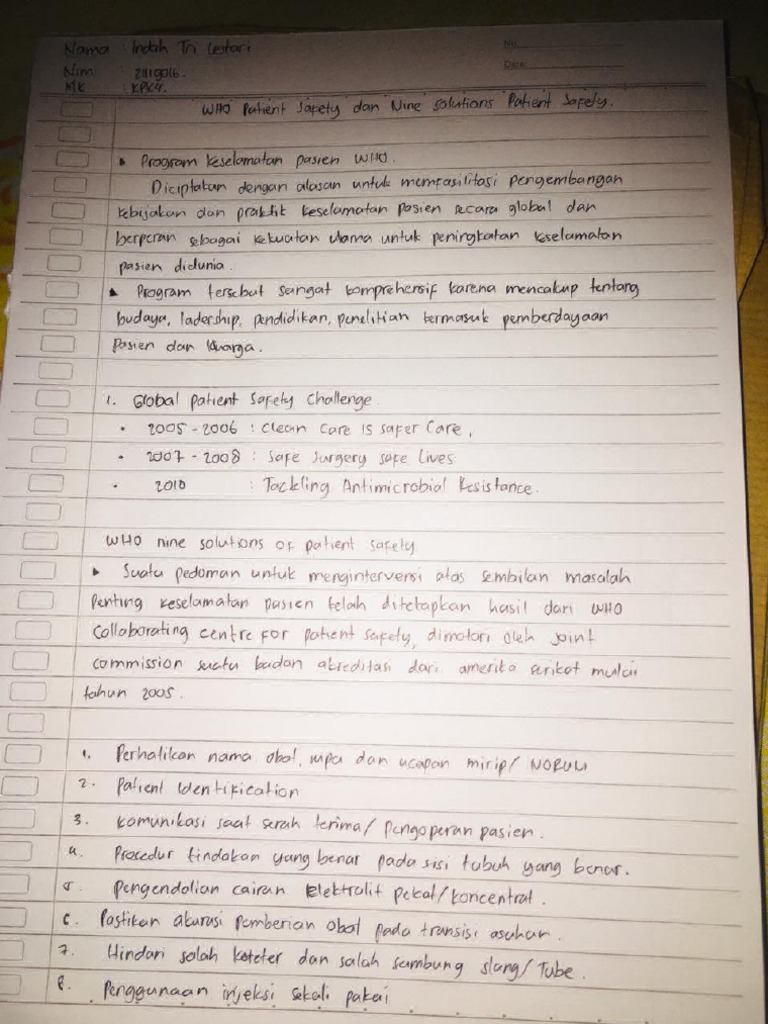 Nama : Indah Tri Lestari
No.
Nim : 2119016.
Date:
MK : KPK4.
WHO Patient Safety dan Nine solutions Patient Safety.
Program Keselamatan pasien WHO.
Diciptakan dengan alasan untuk memfasilitasi pengembangan
kebijakan dan praktik keselamatan pasien secara global dan
berperan sebagai kekuatan utama untuk peningkatan keselamatan
pasien didunia.
Program tersebut sangat komprehensif karena mencakup tentang
budaya, ladership, pendidikan, penelitian termasuk pemberdayaan
pasien dan kluarga.
1. Global patient Safety Challenge.
• 2005 - 2006 : Clean Care is safer Care,
• 2007 - 2008 : Safe Surgery safe Lives
• 2010 : Tackling Antimicrobial Resistance.
WHO nine solutions of patient safety
Suatu pedoman untuk menginterversi atas sembilan masalah
penting keselamatan pasien telah ditetapkan hasil dari WHO
Collaborating centre for patient safety, dimotori oleh joint
commission suatu badan akreditasi dari amerika serikat mulai
tahun 2005.
1. Perhatikan nama obat, rupa dan ucapan mirip/ NORUM
2. Patient Identification
3. Komunikasi saat serah terima/ pengoperan pasien.
4. Procedur tindakan yang benar pada sisi tubuh yang benar.
5. Pengendalian cairan Elektralit pekat/koncentrat.
6. Pastikan akurasi pemberian obat pada transisi asuhan.
7. Hindari salah kateter dan salah sambung slang/ Tube.
8. Penggunaan injeksi sekali pakai